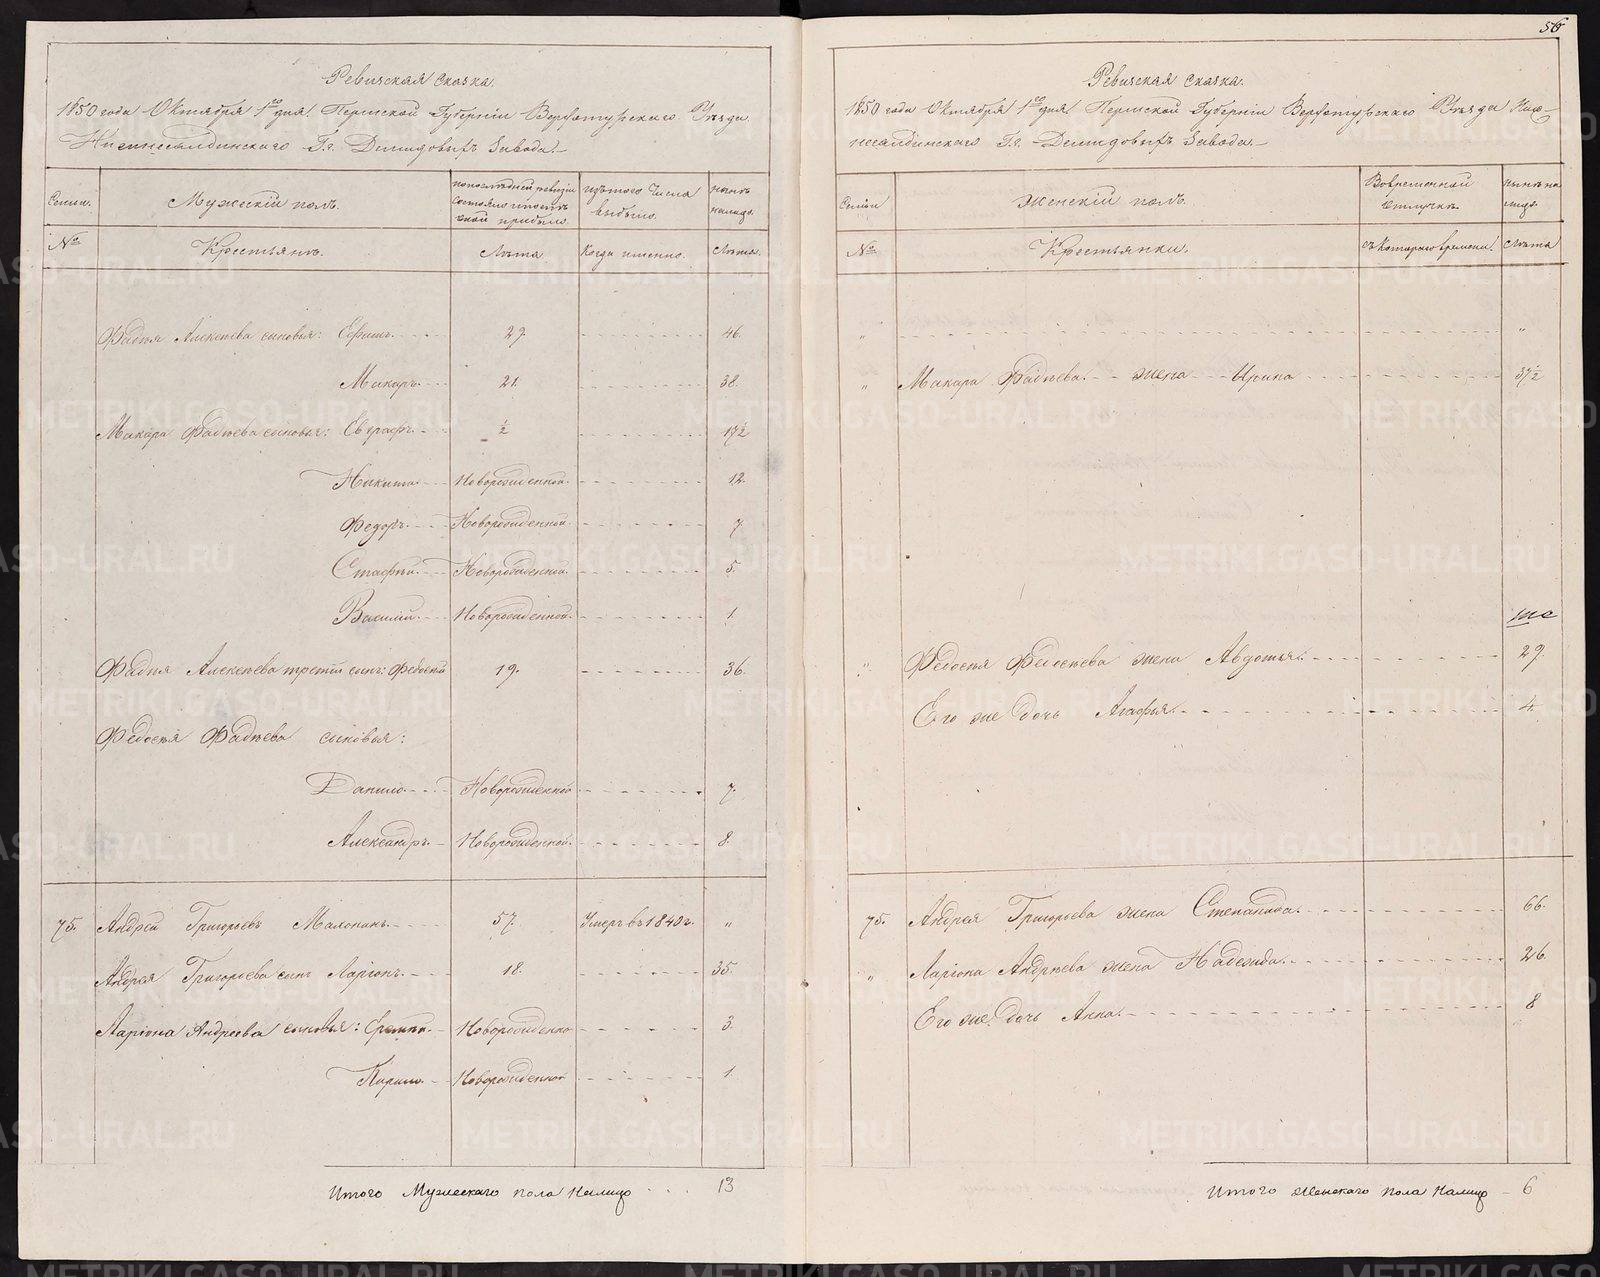 56
Ревизская сказка.
1850 года Октября 1го дня Пермской Губерніи Верхотурскаго Уѣзда
Нижнесалдинскаго Г.г. Демидовыхъ Завода.
Семьи. Мужескій полъ. по послѣдней ревизіи состояло и послѣ оной прибыло. изъ того числа выбыло. нынѣ на лицо.
№ Крестьянъ. Лѣта. Когда именно. Лѣта.
Фадѣя Алексѣева сыновья: Ефимъ. 27. 46.
Макаръ. 21. 38.
Макара Фадѣева сыновья: Евграфъ. ½ 17½
Никита. Новорожденной. 12.
Федоръ. Новорожденной. 7.
Стафѣй. Новорожденной. 5.
Василій. Новорожденной. 1.
Фадѣя Алексѣева третій сынъ: Федосѣй 19. 36.
Федосѣя Фадѣева сыновья:
Данило. Новорожденной 7.
Александръ. Новорожденной. 8.
75. Андрей Григорьевъ Малонинъ. 57. Умеръ въ 1840 г. "
Андрея Григорьева сынъ Ларіонъ. 18. 35.
Ларіона Андреева сыновья: Новорожденно 3.
Кирило. Новорожденной 1.
Итого Мужескаго пола налицо 13
Ревизская сказка.
1850 года Октября 1го дня Пермской Губерніи Верхотурскаго Уѣзда Ниж-
несалдинскаго Г.г. Демидовыхъ Завода.
Семьи Женскій полъ. Во временной отлучкѣ. нынѣ на лицо.
№ Крестьянки. съ котораго времени. Лѣта
" "
" Макара Фадѣева жена Ирина 37½
" Федосѣя Федосѣева жена Авдотья. 29.
Его же дочь Агафья. 4.
75. Андрея Григорьева жена Степанида. 66.
" Ларіона Андрѣева жена Надежда. 26.
Его же дочь Анна. 8
Итого женскаго пола налицо 6
METRIKI.GASO-URAL.RU